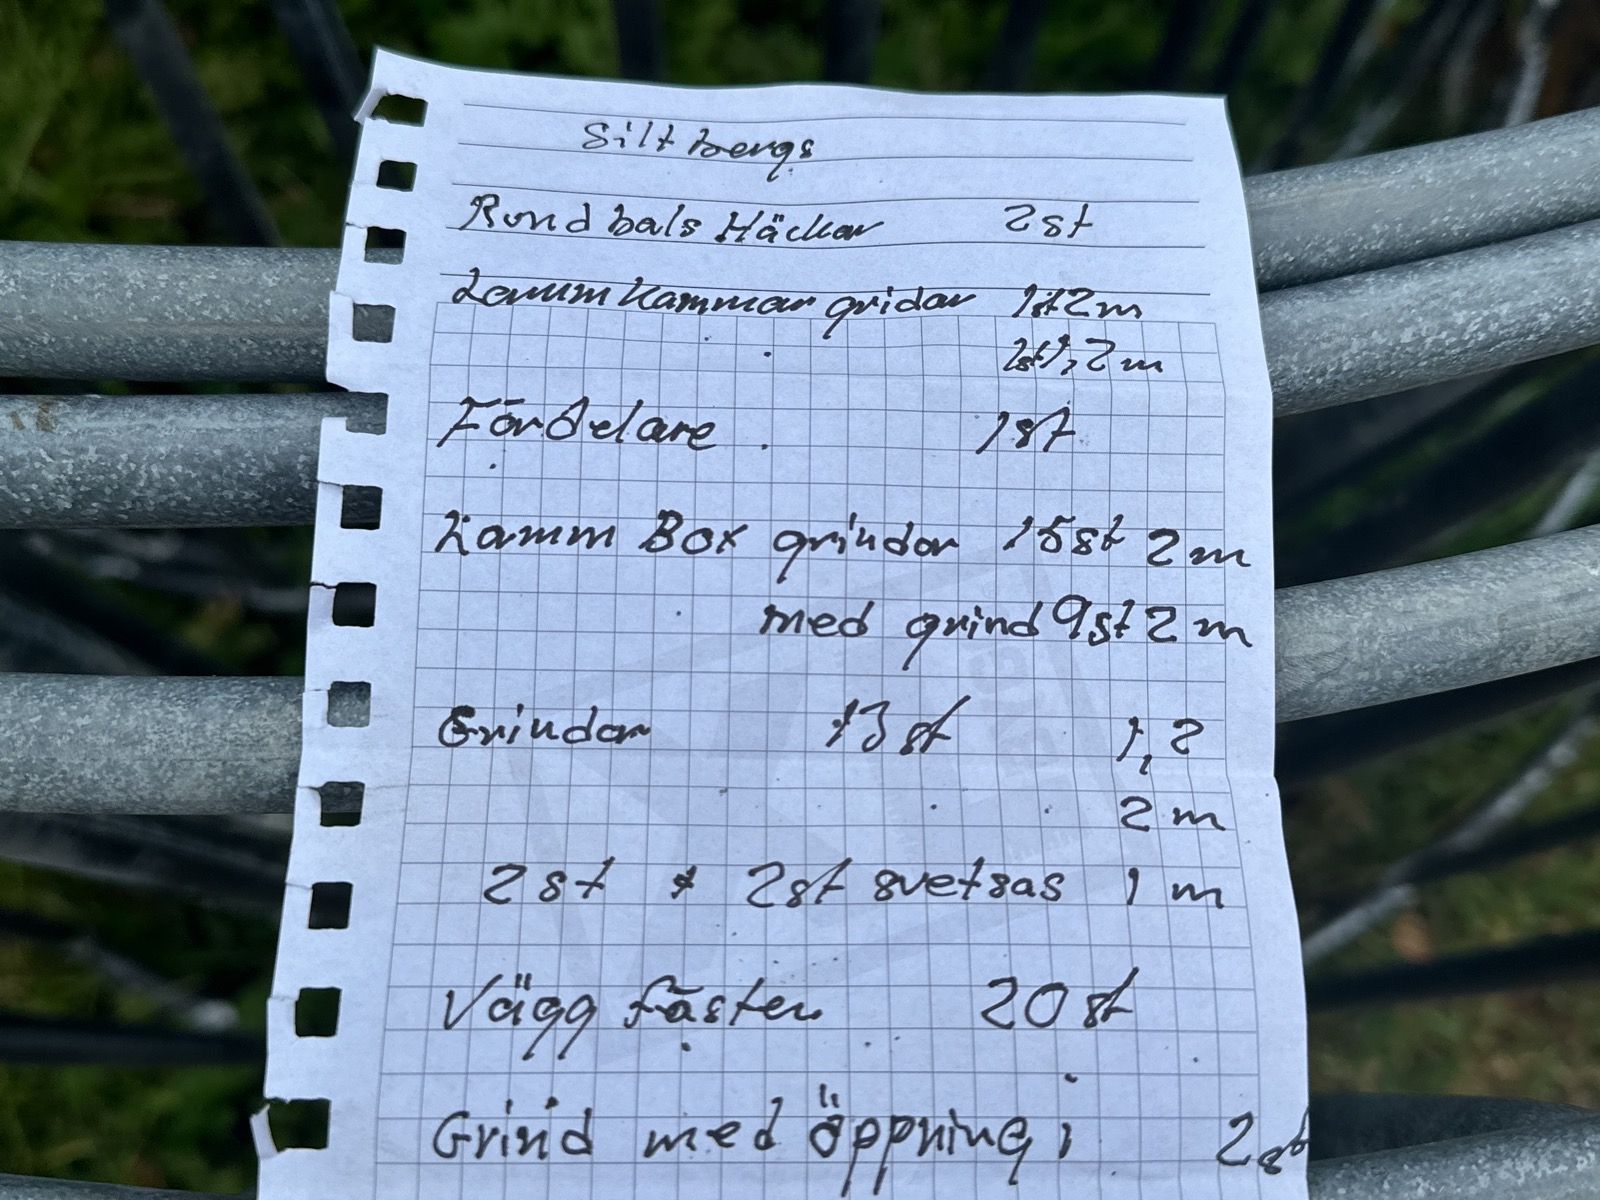 Siltbergs
Rundbals Häckar 2st
Lammkammar gridar 1st 2m
2st 1,2m
Fördelare 1st
Lamm Box grindar 15st 2m
med grind 9st 2m
Grindar 13st 1,2
2m
2st 2st svetsas 1m
Vägg fästen 20st
Grind med öppning i 2st